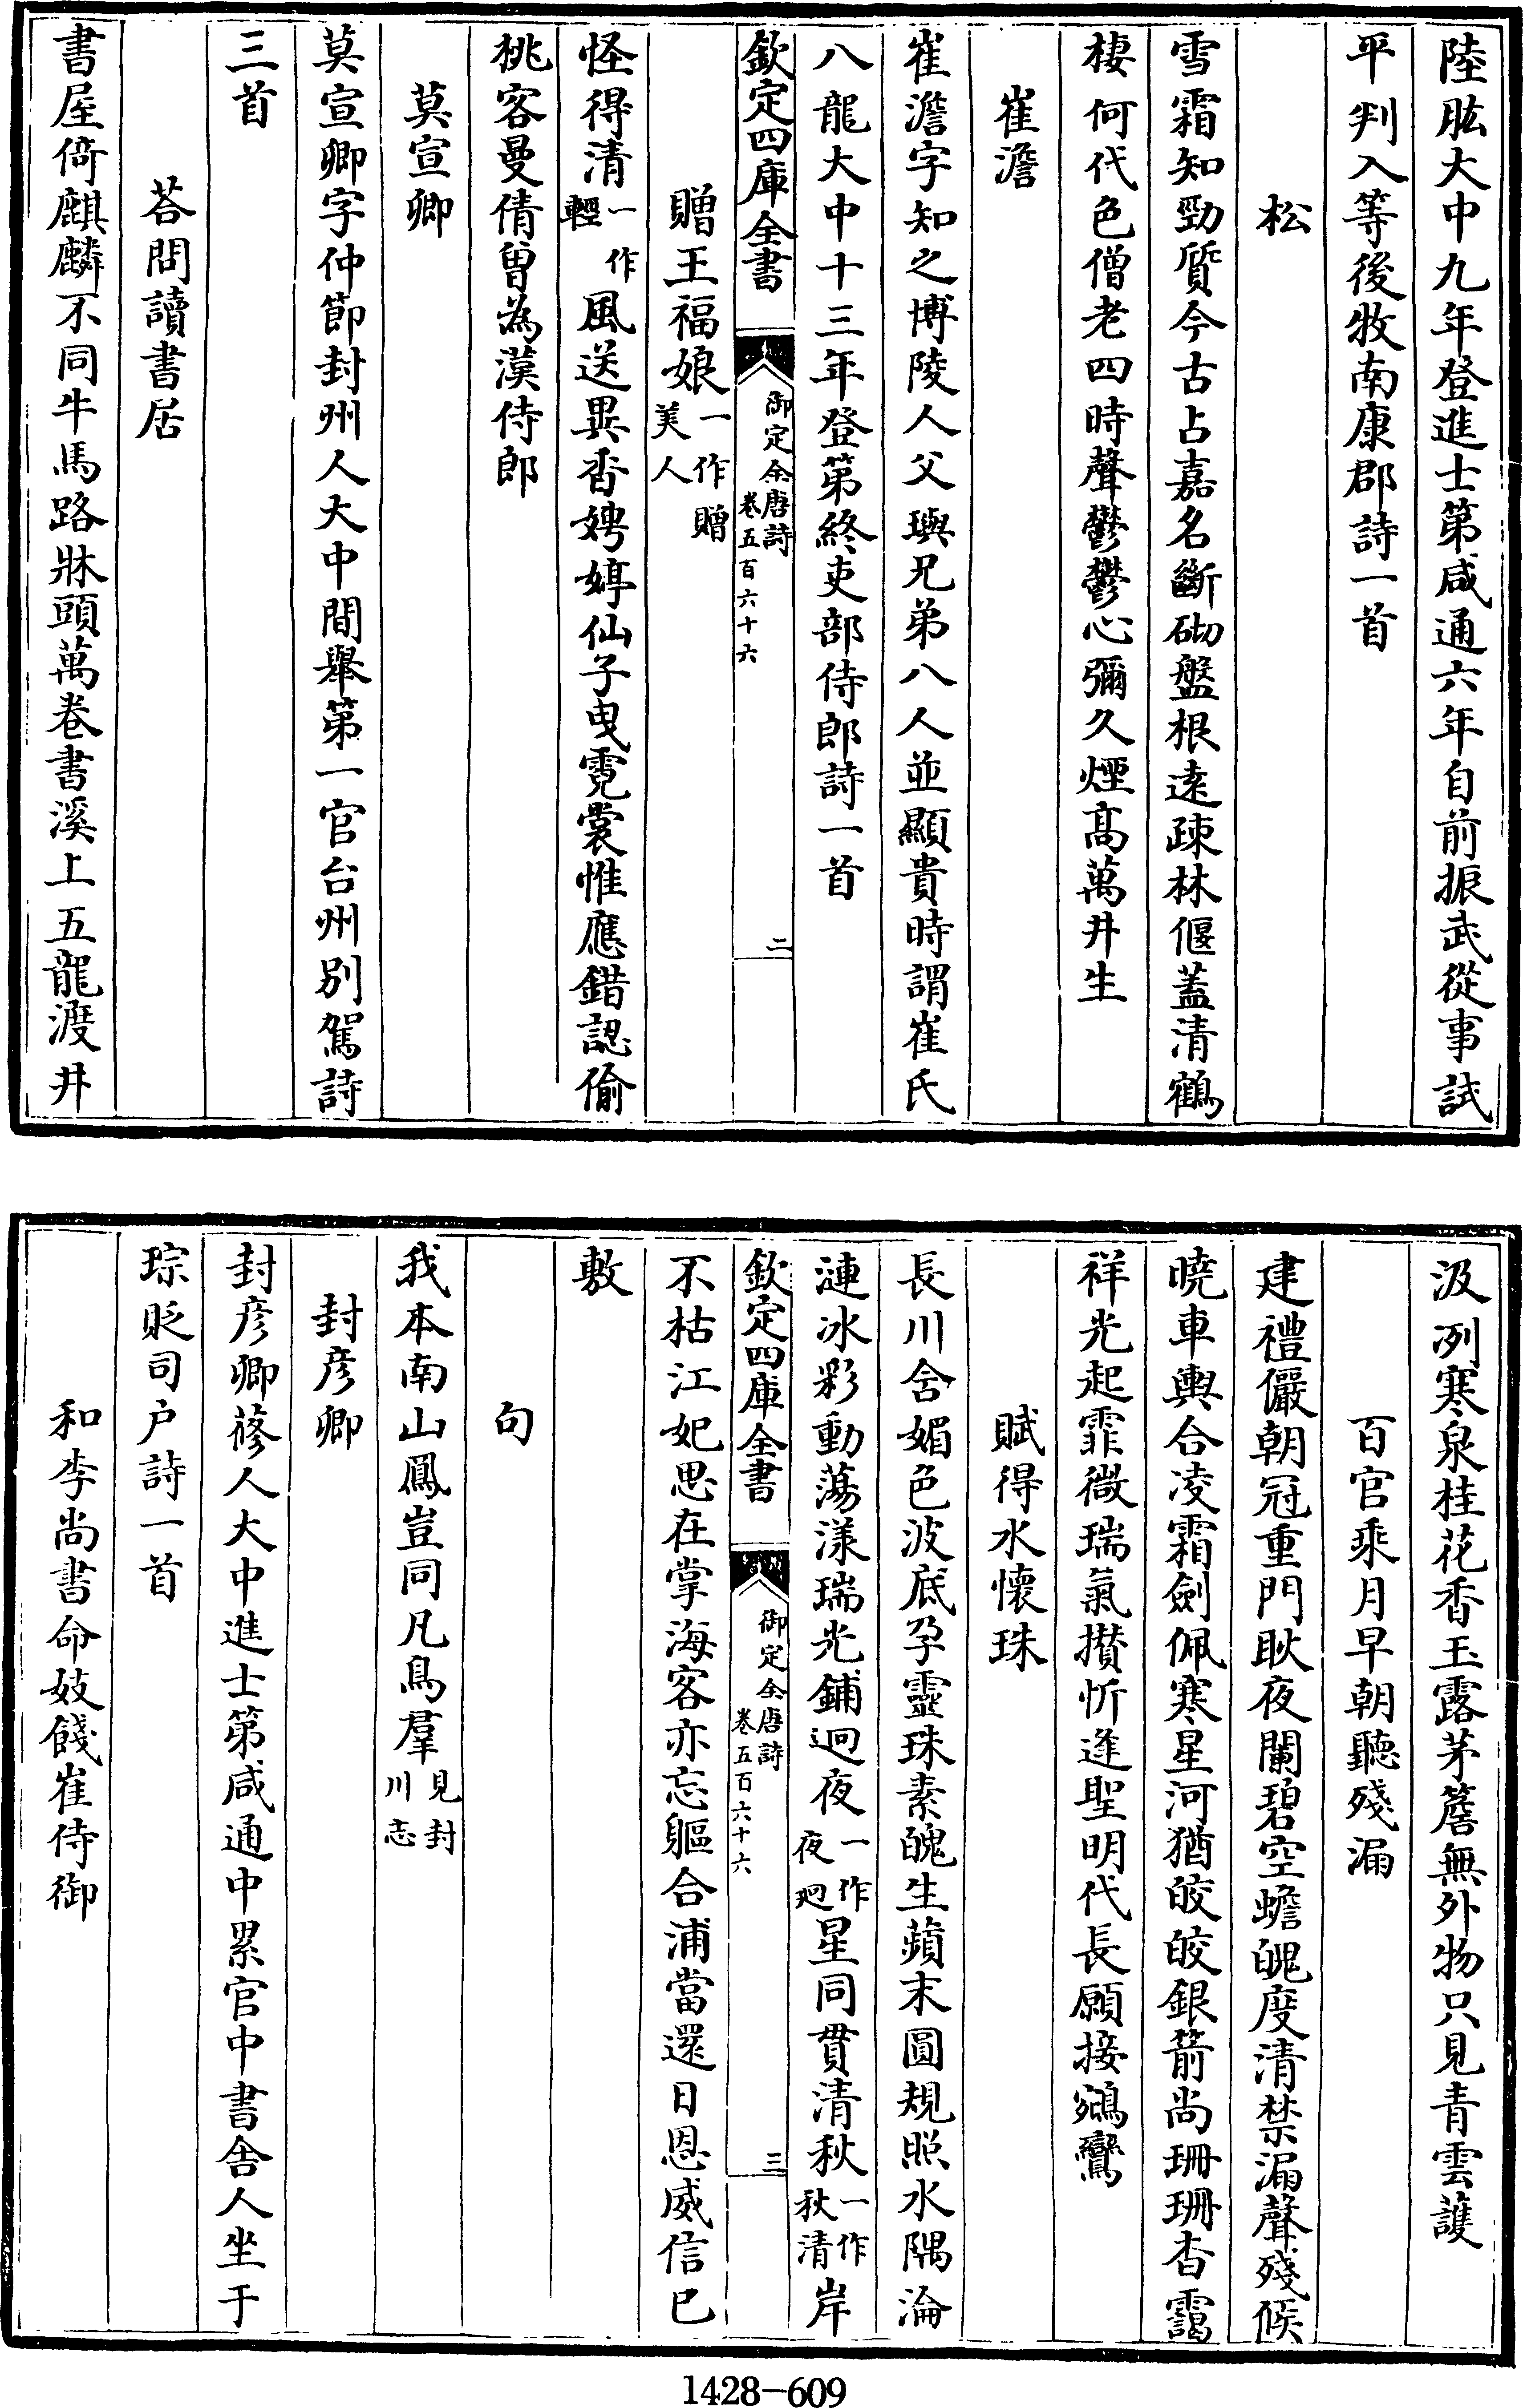 陸肱大中九年登進士第咸通六年自前振武從事試
平判入等後牧南康郡詩一首
松
雪霜知勁質今古占嘉名斷砌盤根逺疎林偃蓋清鶴
棲何代色僧老四時聲鬱鬱心彌久煙髙萬井生
崔澹
崔澹字知之博陵人父璵兄弟八人並顯貴時謂崔氏
八龍大中十三年登第終吏部侍郎詩一首
欽定四庫全書
御定全唐詩
卷五百六十六
二
贈王福娘一作贈美人
怪得清一作輕風送異香娉婷仙子曳霓裳惟應錯認偷
桃客曼倩曾為漢侍郎
莫宣卿
莫宣卿字仲節封州人大中間舉第一官台州別駕詩
三首
荅問讀書居
書屋倚麒麟不同牛馬路牀頭萬卷書溪上五龍渡井
汲冽寒泉桂花香玉露茅簷無外物只見青雲護
百官乘月早朝聽殘漏
建禮儼朝冠重門耿夜闌碧空蟾魄度清禁漏聲殘候
曉車輿合凌霜劍佩寒星河猶皎皎銀箭尚珊珊杳靄
祥光起霏微瑞氣攅忻逢聖明代長願接鵷鸞
賦得水懷珠
長川含媚色波底孕靈珠素魄生蘋末圓規照水隅淪
漣冰彩動蕩漾瑞光鋪迥夜一作夜迥星同貫清秋一作秋清岸
欽定四庫全書
御定全唐詩
卷五百六十六
三
不枯江妃思在掌海客亦忘軀合浦當還日恩威信已
敷
句
我本南山鳳豈同凡鳥羣見封川志
封彦卿
封彦卿蓨人大中進士第咸通中累官中書舍人坐于
琮貶司户詩一首
和李尚書命妓餞崔侍御
1428-609